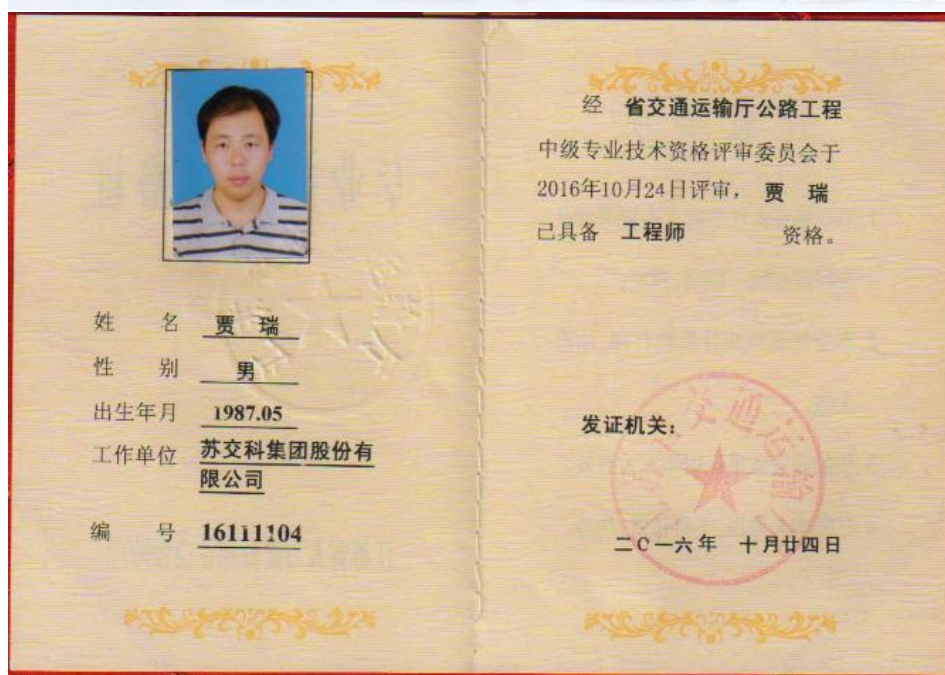 姓 名 贾 瑞
性 别 男
出生年月 1987.05
工作单位 苏交科集团股份有
限公司
编 号 16111104
经 省交通运输厅公路工程
中级专业技术资格评审委员会于
2016年10月24日评审， 贾 瑞
已具备 工程师 资格。
发证机关：
交通运输厅
二〇一六年 十月廿四日